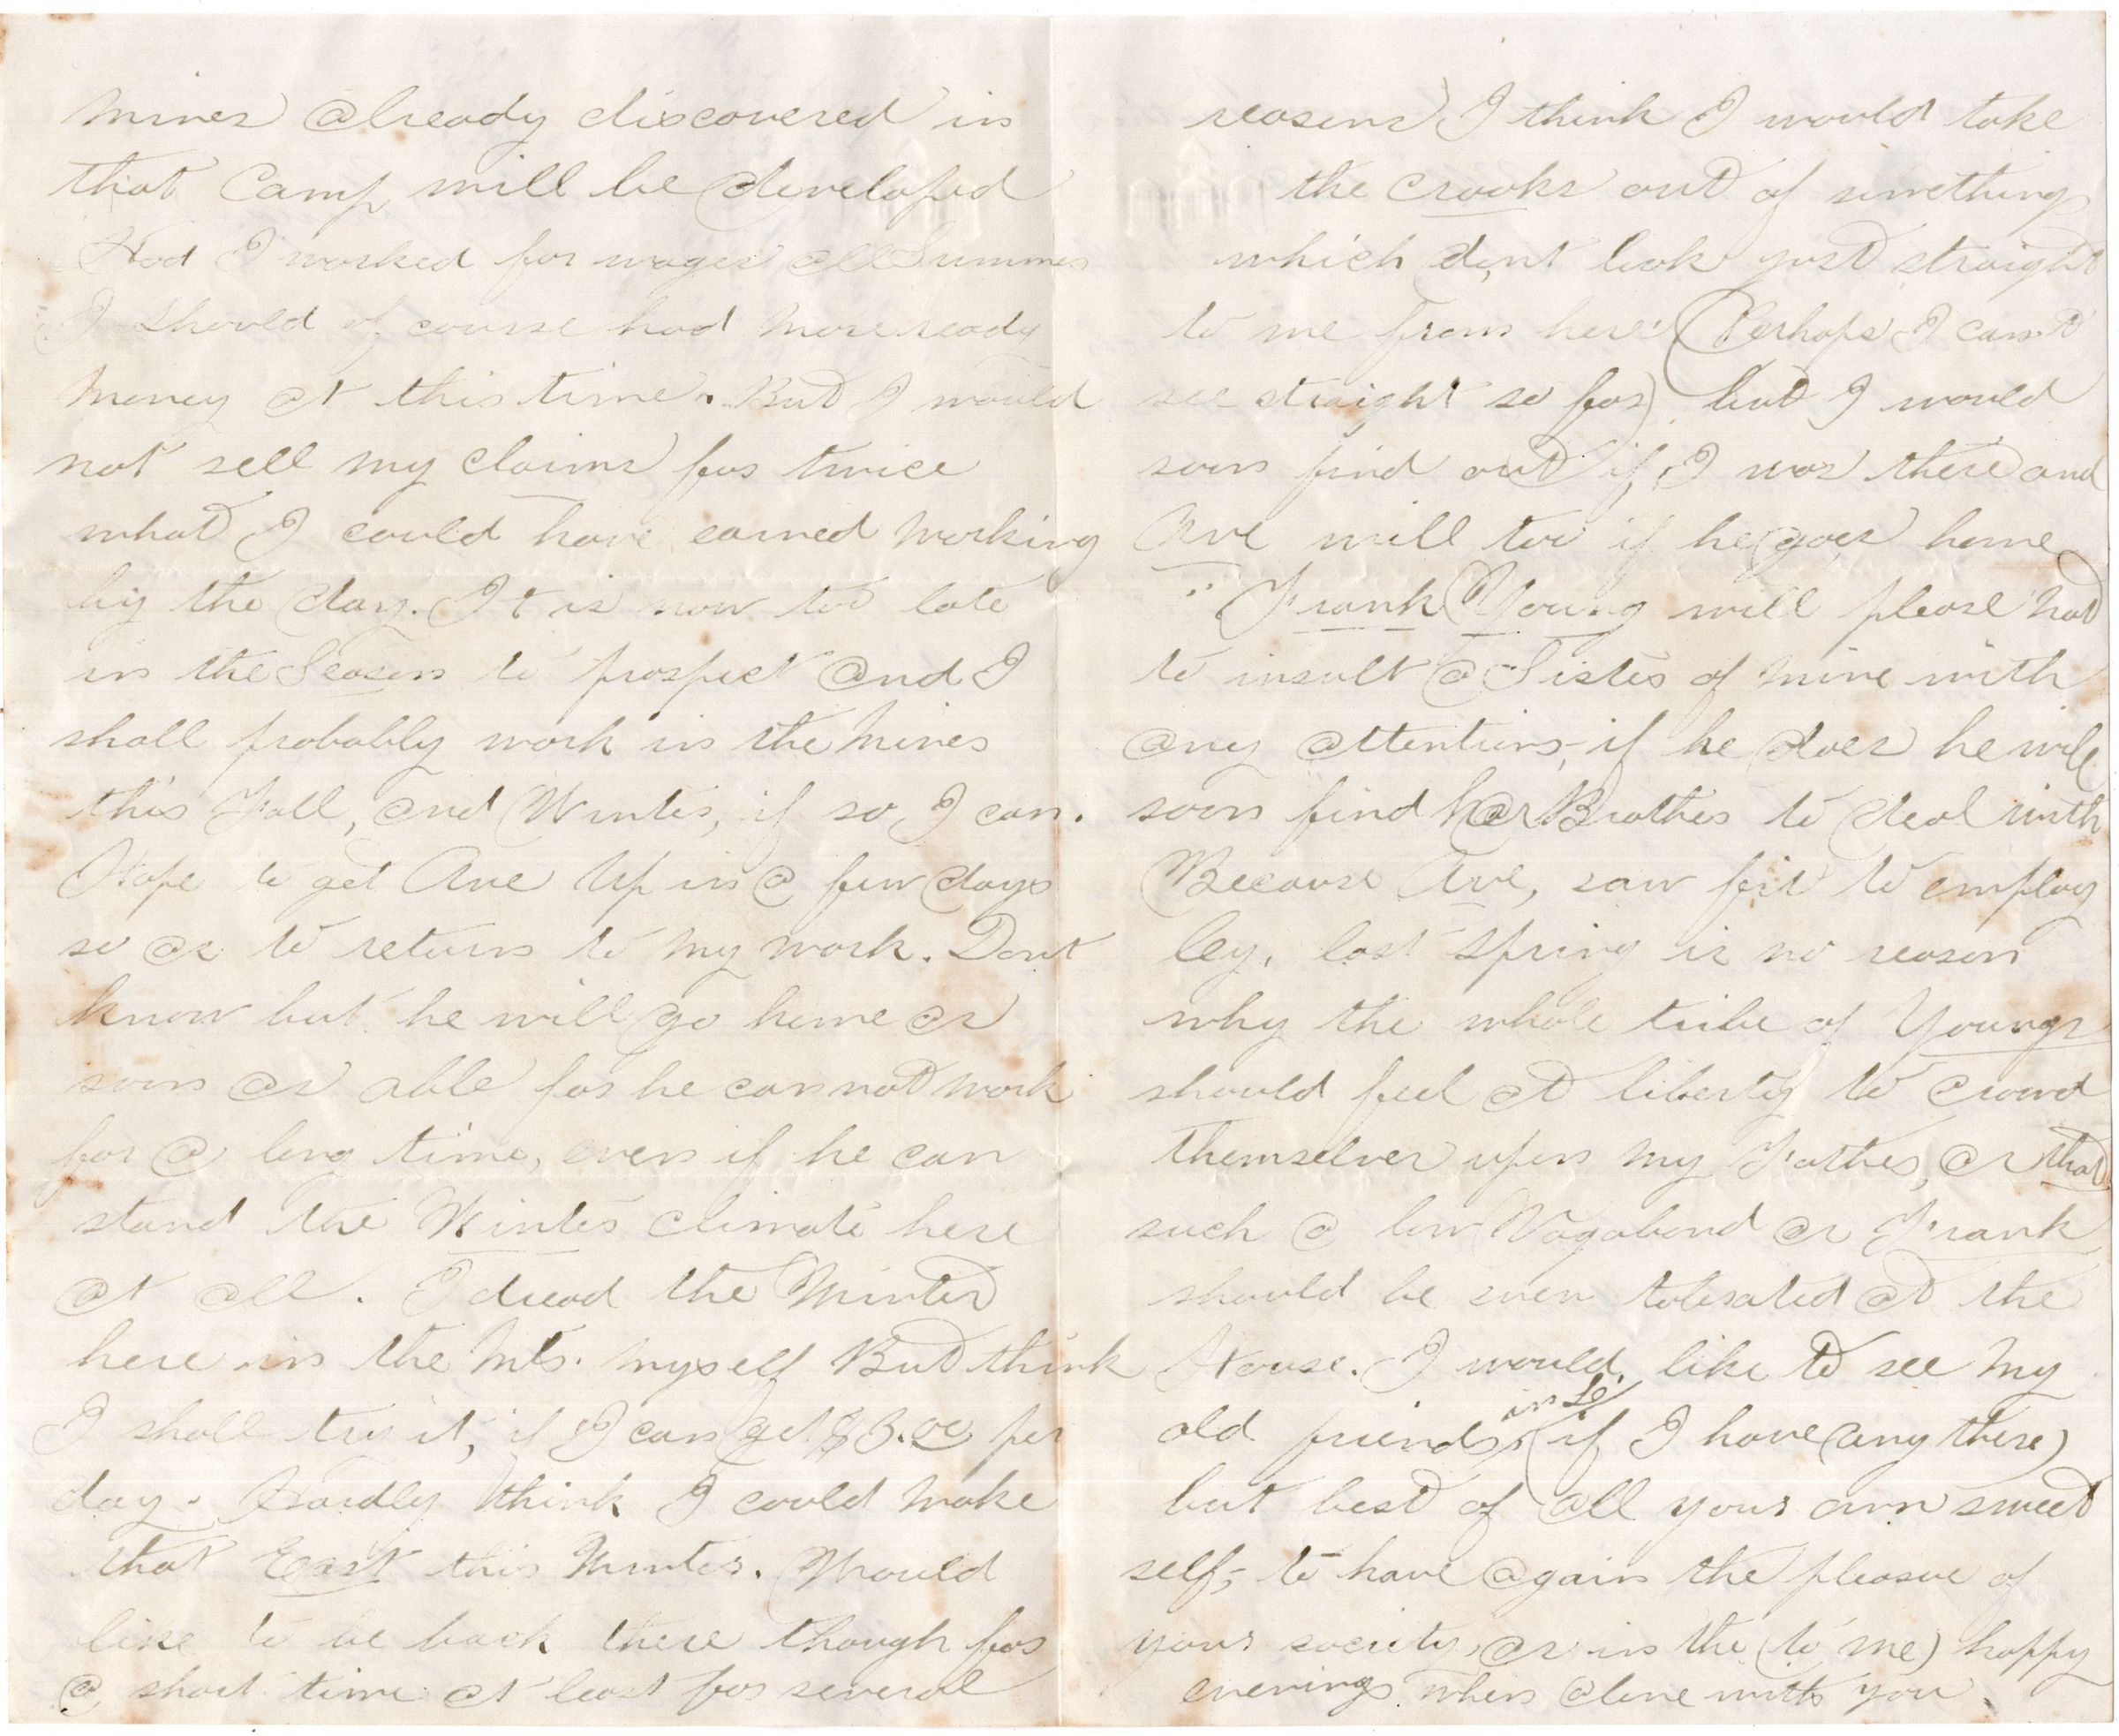 mines already discovered in
that Camp will be developed
Had I worked for wages all Summer
I should of course had more ready
money at this time. But I would
not sell my claims for twice
what I could have earned working
by the day. It is now too late
in the Season to prospect and I
shall probably work in the Mines
this Fall, and Winter, if so I can.
Hope to get Ave up in a few days
so as to return to my work. Dont
know but he will go home as
soon as able for he can not work
for a long time, even if he can
stand the Winter climate here
at all. I dread the Winter
here in the Mts. myself But think
I shall try it, if I can get $3.00 per
day. Hardly think I could make
that East this Winter. Would
like to be back there though for
a short time at least for several
reasons) I think I would take
the crooks out of something
which dont look just straight
to me from here (Perhaps I can't
see straight so far) but I would
soon find out if I was there and
Ave will too if he goes home
Frank Young will please not
to insult a Sister of mine with
any attentions, if he does he will
soon find her Brother to deal with
Because Ave, saw fit to employ
Cy, last Spring is no reason
why the whole tribe of Youngs
should feel at liberty to crowd
themselves upon my Father, or that
such a low Vagabond as Frank
should be even tolerated at the
House. I would like to see my
old friends, in (if I have any there)
but best of all your own sweet
self, to have again the pleasue of
your society, as in the (to me) happy
evenings when alone with you.